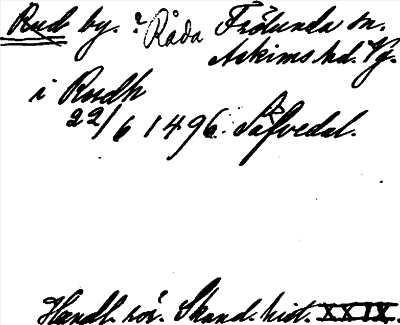 Rud by. ? Råda Frölunda sn.
Askims hd. Vg.
i Rudh
22/6 1496. Säfvedal.
Handl. rör. Skand. hist. XXIX.